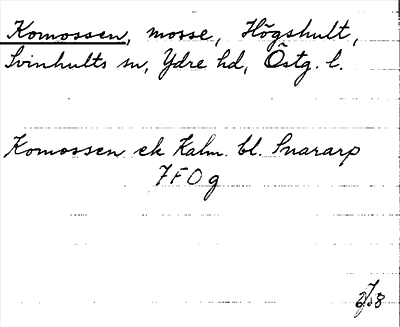 Komossen, mosse, Högshult,
Svinhults sn, Ydre hd, Östg. l.
Komossen ek Kalm. bl. Snararp
7 F 0 g